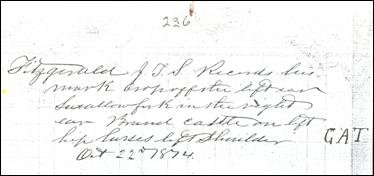 236
Fitzgerald J. T. S Records his
mark crop off the left ear
Swallowfork in the right
ear Brand cattle on left
hip horses left Shoulder
Oct 22nd 1874.
GAT